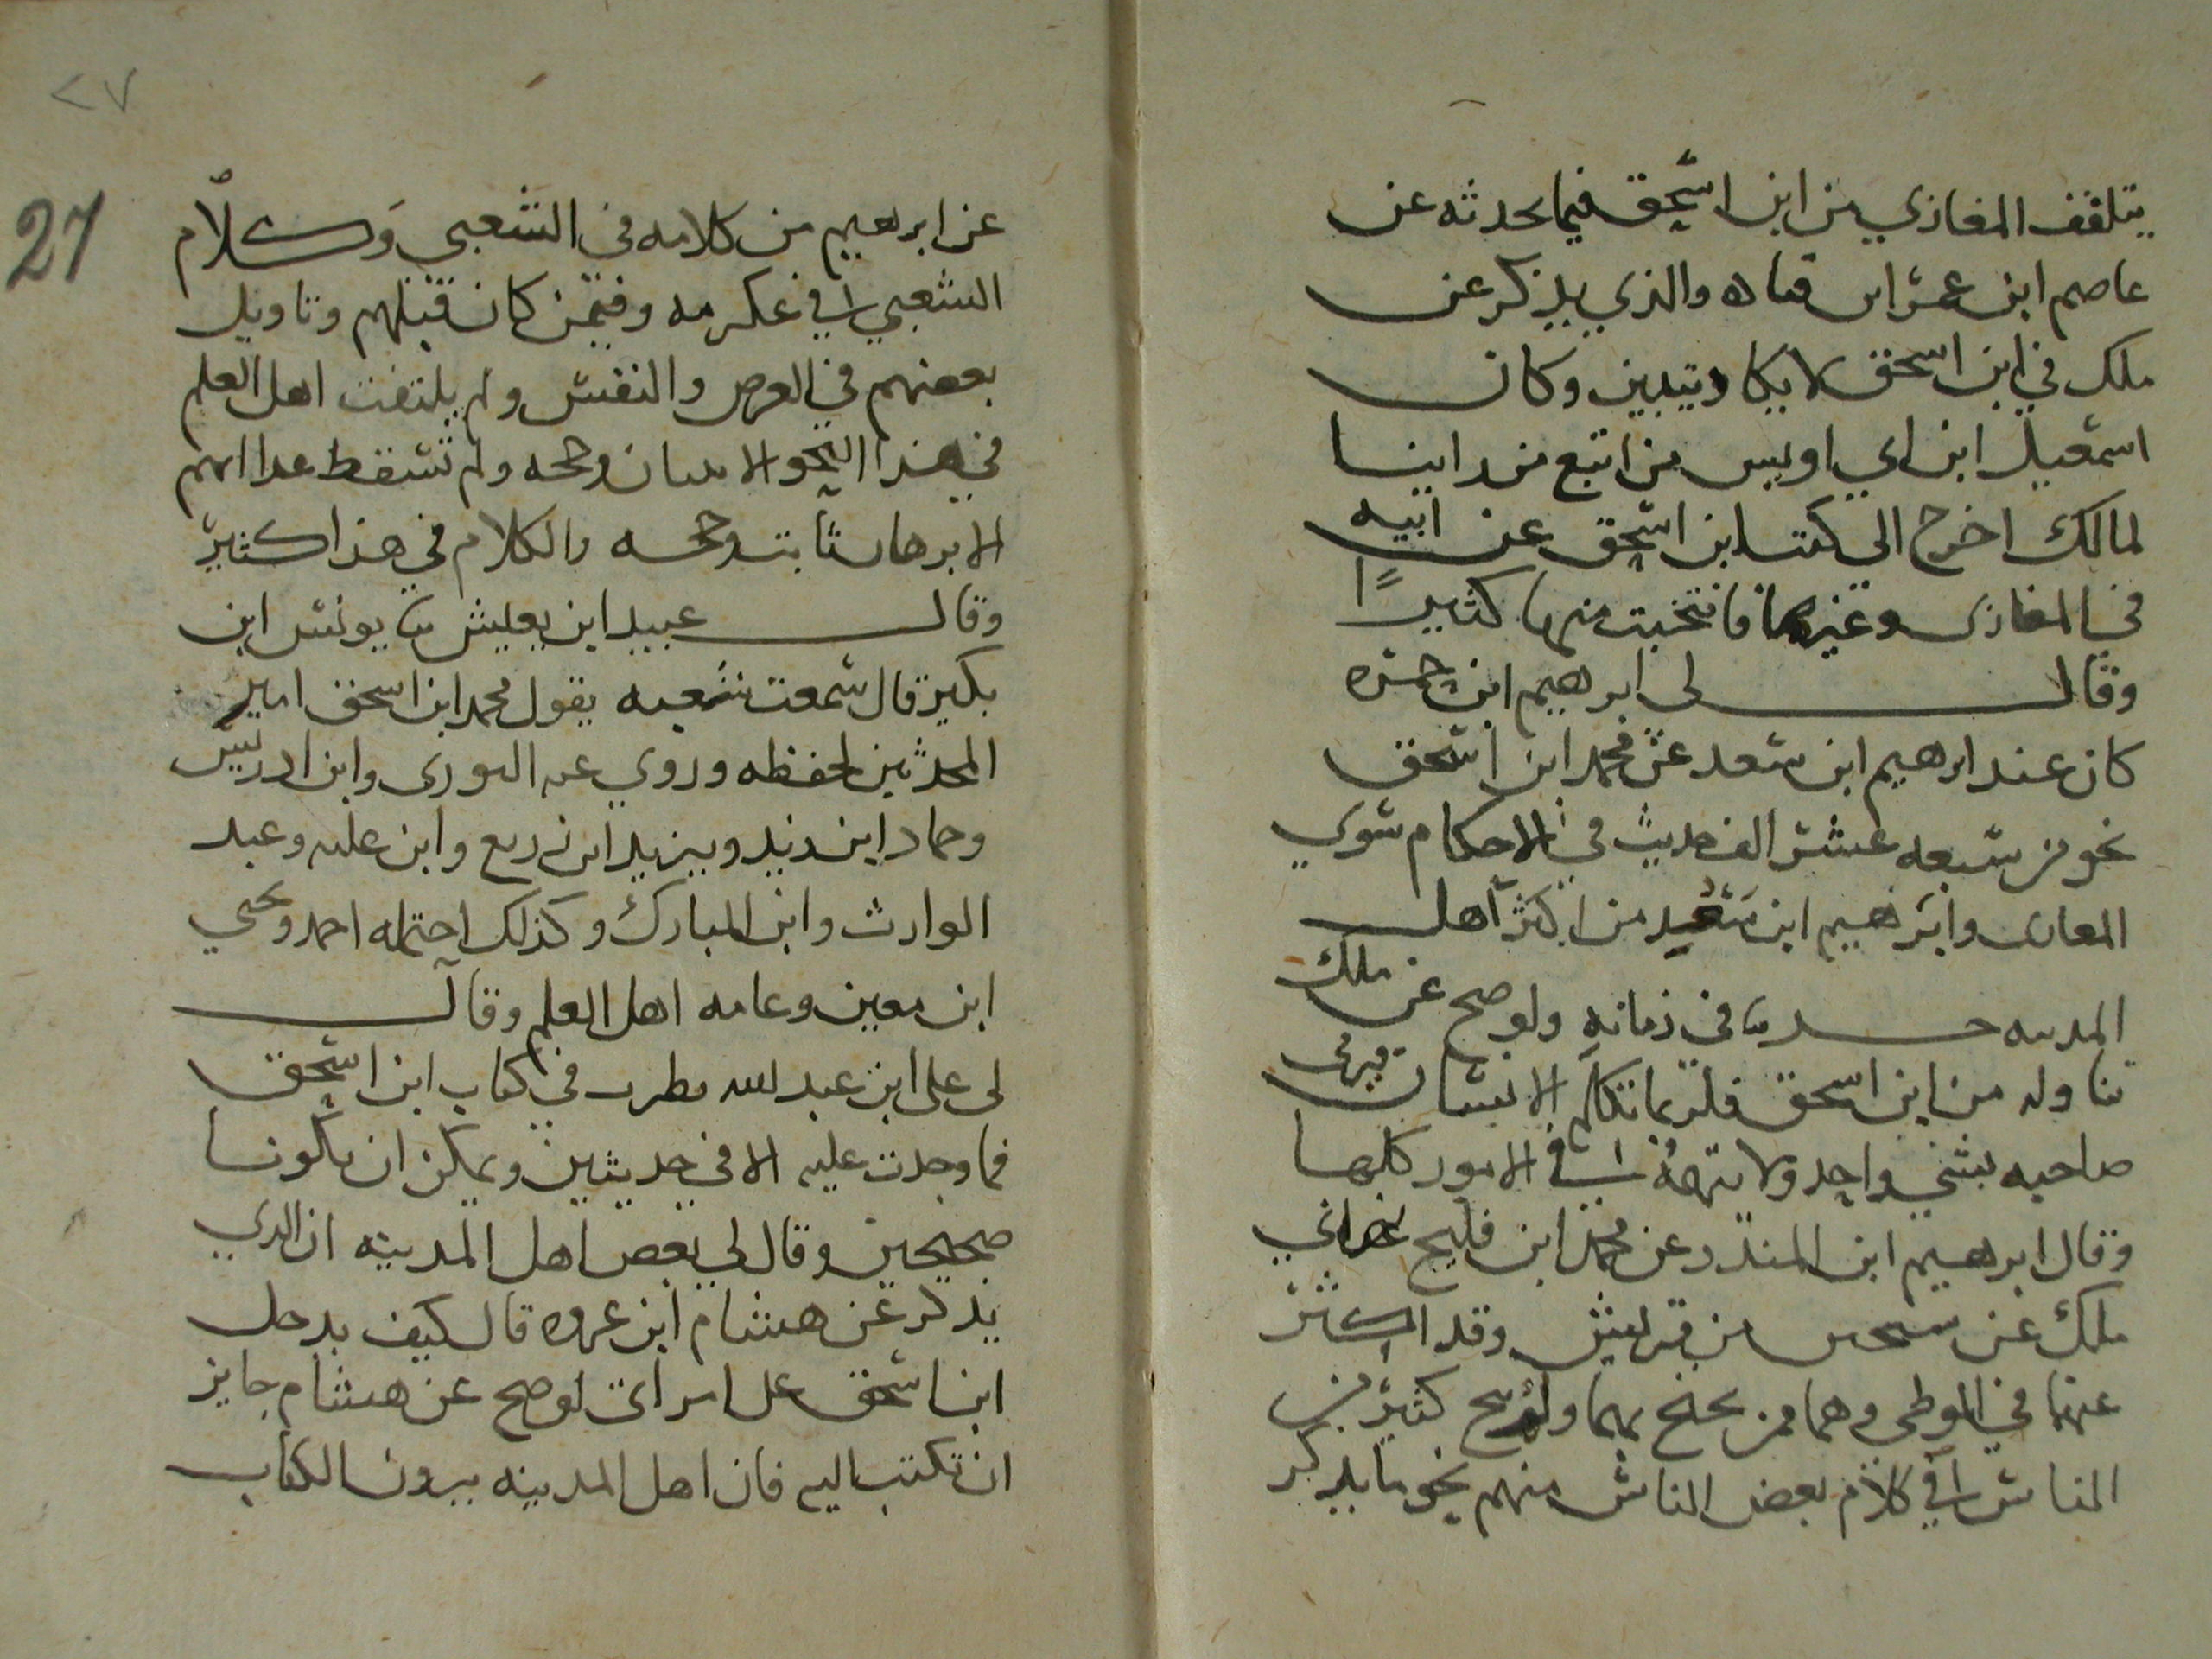 يتلقف المغازي من ابن اسحق فيما يحدثه عن
عاصم ابن عمر ابن قتاده والذي يذكر عن
ملك في ابن اسحق لا يكاد يتبين وكان
اسمعيل ابن ابي اويس من اتبع من راينا
لمالك اخرج الى كتب ابن اسحق عن ابيه
في المغازى وغيرها فانتخبت منها كثيرًا
وقال لى ابرهيم ابن حمزه
كان عند ابرهيم ابن سعد عن محمد ابن اسحق
نحو من سبعه عشر الف حديث في الاحكام سوي
المغازى وابرهيم ابن سعد من اكثر اهل
المدينه حديثا في زمانه ولو صح عن ملك
تناوله من ابن اسحق فلربما تكلم الانسان فيرمى
صاحبه بشي واحد ولا يتهمه في الامور كلها
وقال ابرهيم ابن المنذر عن محمد ابن فليح نهاني
ملك عن شيخين من قريش وقد اكثر
عنهما في الموطى وهما ممن يحتج بهما ولم ينج كثير من
الناس في كلام بعض الناس منهم نحو ما يذكر
٢٧
27
عن ابرهيم من كلامه في الشعبي وكلام
الشعبي في عكرمه وفيمن كان قبلهم وتاويل
بعضهم في العرض والنفس ولم يلتفت اهل العلم
في هذا النحو الا ببيان وحجه ولم تسقط عدالتهم
الا ببرهان ثابت وحجه والكلام في هذا كثير
وقال عبيد ابن يعيش ثنا يونس ابن
بكير قال سمعت شعبه يقول محمد ابن اسحق امير
المحدثين لحفظه وروي عنه الثورى وابن ادريس
وحماد ابن زيد ويزيد ابن زريع وابن عليه وعبد
الوارث وابن المبارك وكذلك احتمله احمد ويحيي
ابن معين وعامه اهل العلم وقال
لى على ابن عبد الله نظرت في كتاب ابن اسحق
فما وجدت عليه الا في حديثين ويمكن ان يكونا
صحيحين وقال لي بعض اهل المدينه ان الذي
يذكر عن هشام ابن عروه قال كيف يدخل
ابن اسحق على امراتى لو صح عن هشام جايز
ان تكتب اليه فان اهل المدينه يرون الكتاب